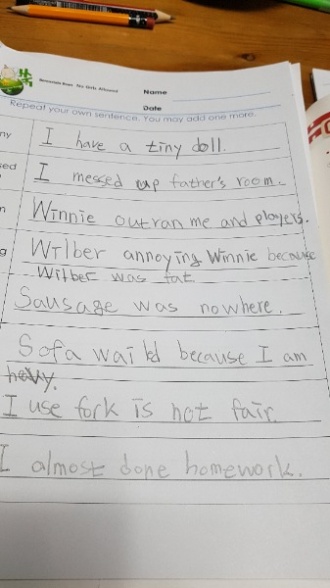 Name
Date
Repeat your own sentence. You may add one more.
ny
I have a tiny doll.
sed
I messed up father's room.
n
Winnie outran me and players.
g
Wilber annoying Winnie because
Wilber was fat
Sausage was nowhere.
Sofa waild because I am
hevy.
I use fork is not fair.
I almost done homework.